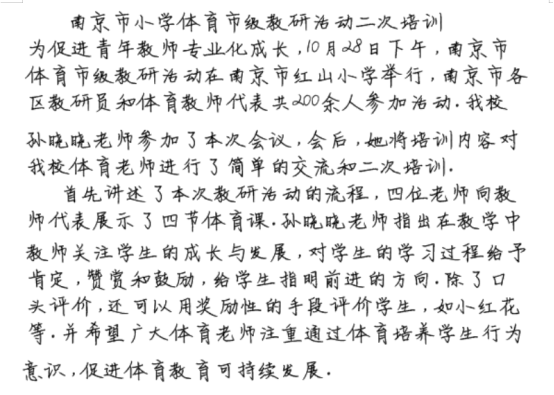 南京市小学体育市级教研活动二次培训
为促进青年教师专业化成长,10月28日下午,南京市
体育市级教研活动在南京市红山小学举行,南京市各
区教研员和体育教师代表共200余人参加活动.我校
孙晓晓老师参加了本次会议,会后,她将培训内容对
我校体育老师进行了简单的交流和二次培训.
首先讲述了本次教研活动的流程,四位老师向教
师代表展示了四节体育课.孙晓晓老师指出在教学中
教师关注学生的成长与发展,对学生的学习过程给予
肯定,赞赏和鼓励,给学生指明前进的方向.除了口
头评价,还可以用奖励性的手段评价学生,如小红花
等.并希望广大体育老师注重通过体育培养学生行为
意识,促进体育教育可持续发展.